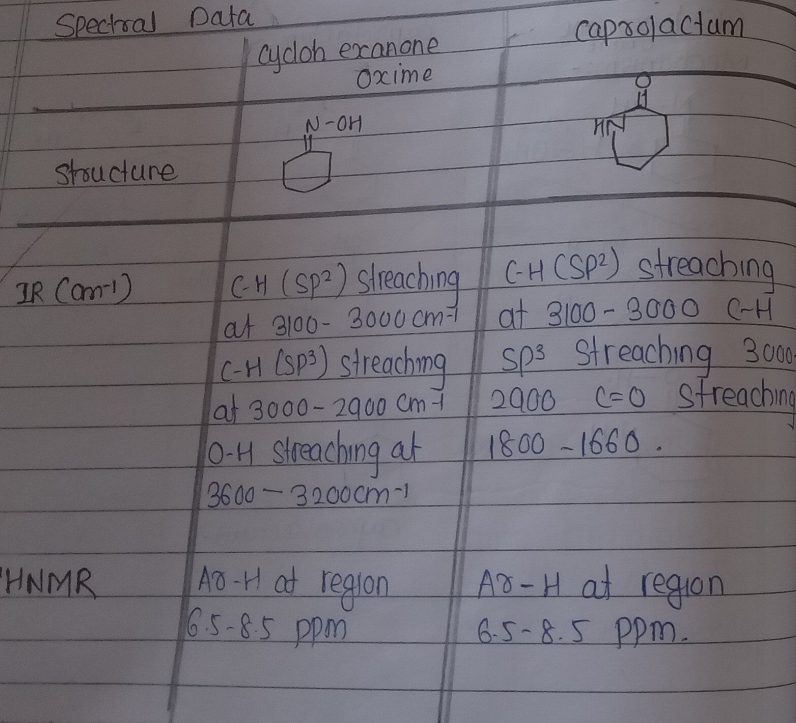 Spectral Data
Cycloh exanone
Oxime
Caprolactum
Structure
N-OH
O
HN
IR (cm-1)
C-H (SP2) Streaching
at 3100-3000 cm-1
C-H (SP3) Streaching
at 3000-2900 cm-1
O-H Streaching at
3600-3200cm-1
C-H (SP2) Streaching
at 3100-3000 C-H
SP3 Streaching 3000-
2900 C=O Streaching
1800-1660.
'HNMR
Ar-H at region
6.5-8.5 ppm
Ar-H at region
6.5-8.5 ppm.